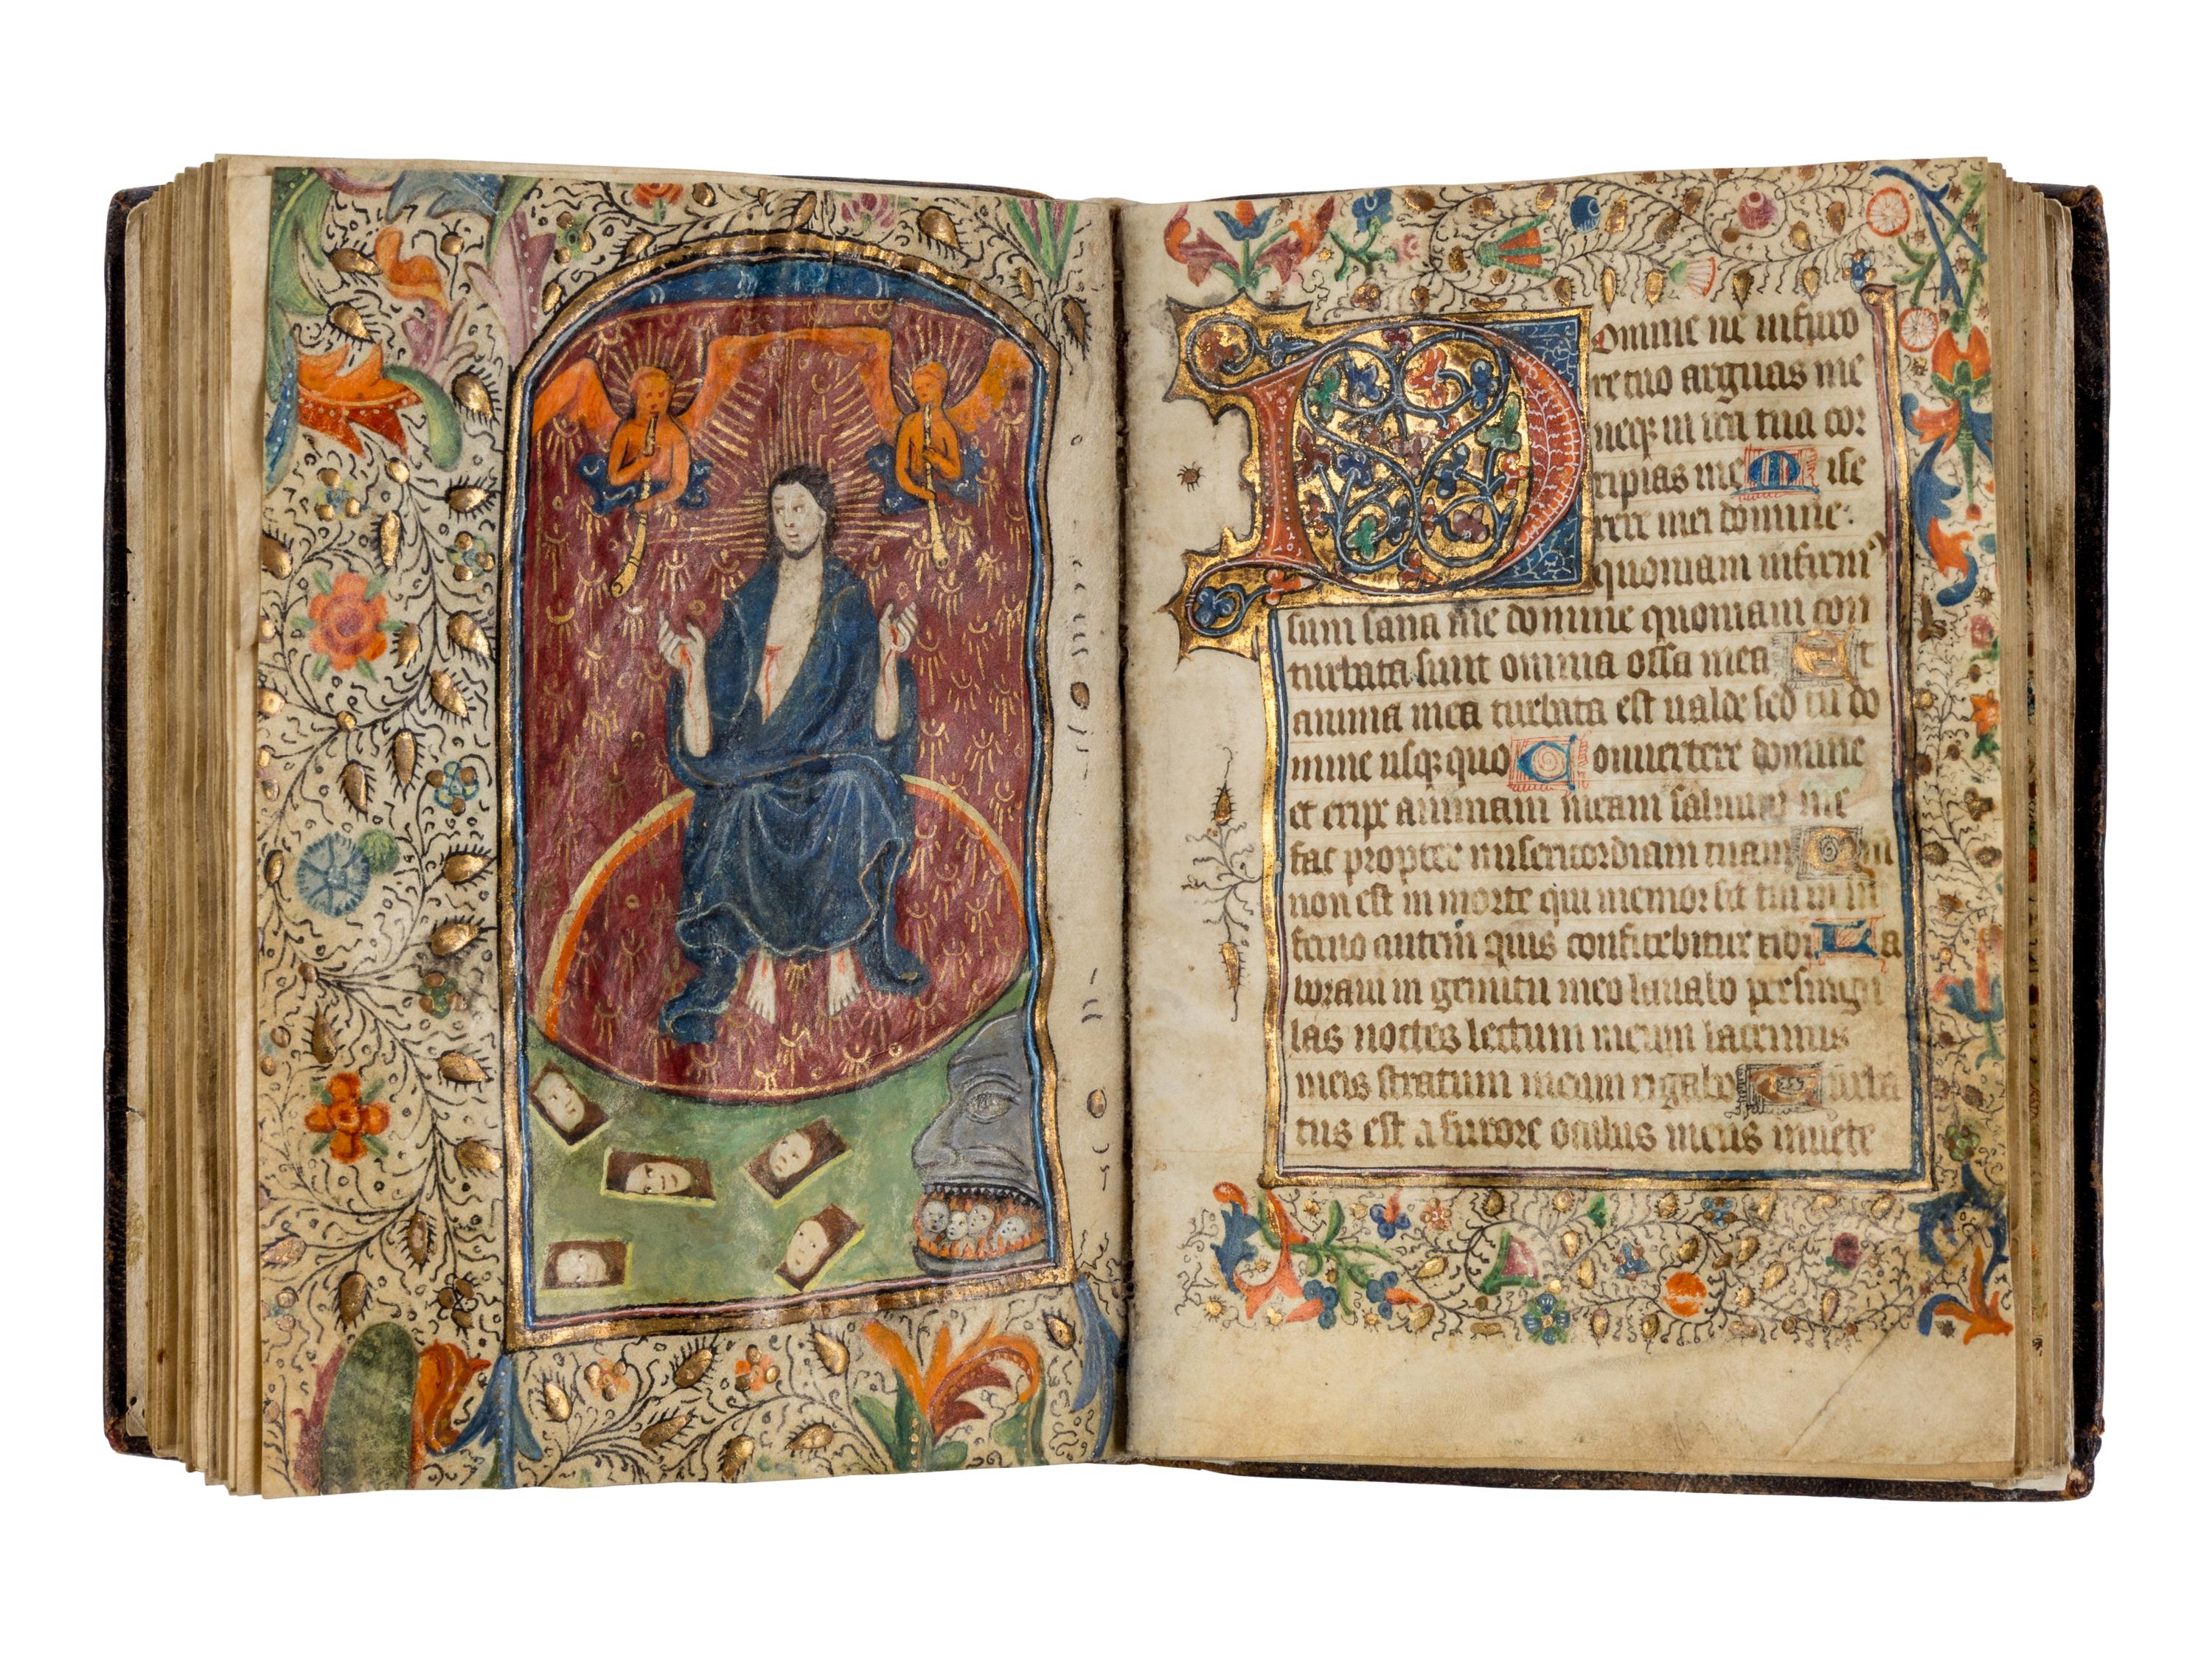 Domine ne in furo
re tuo arguas me
neq; in ira tua cor
ripias me Mise
rere mei domine:
quoniam infirmꝰ
sum sana me domine quoniam con
turbata sunt omnia ossa mea Et
anima mea turbata est ualde sed tu do
mine usq; quo Conuertere domine
et eripe animam meam saluum me
fac propter misericordiam tuam Qm̄
non est in morte qui memor sit tui in in
ferno autem quis confitebitur tibi La
boraui in gemitu meo lauabo per singu
las noctes lectum meum lacrimis
meis stratum meum rigabo Turba
tus est a furore oculus meus inuete